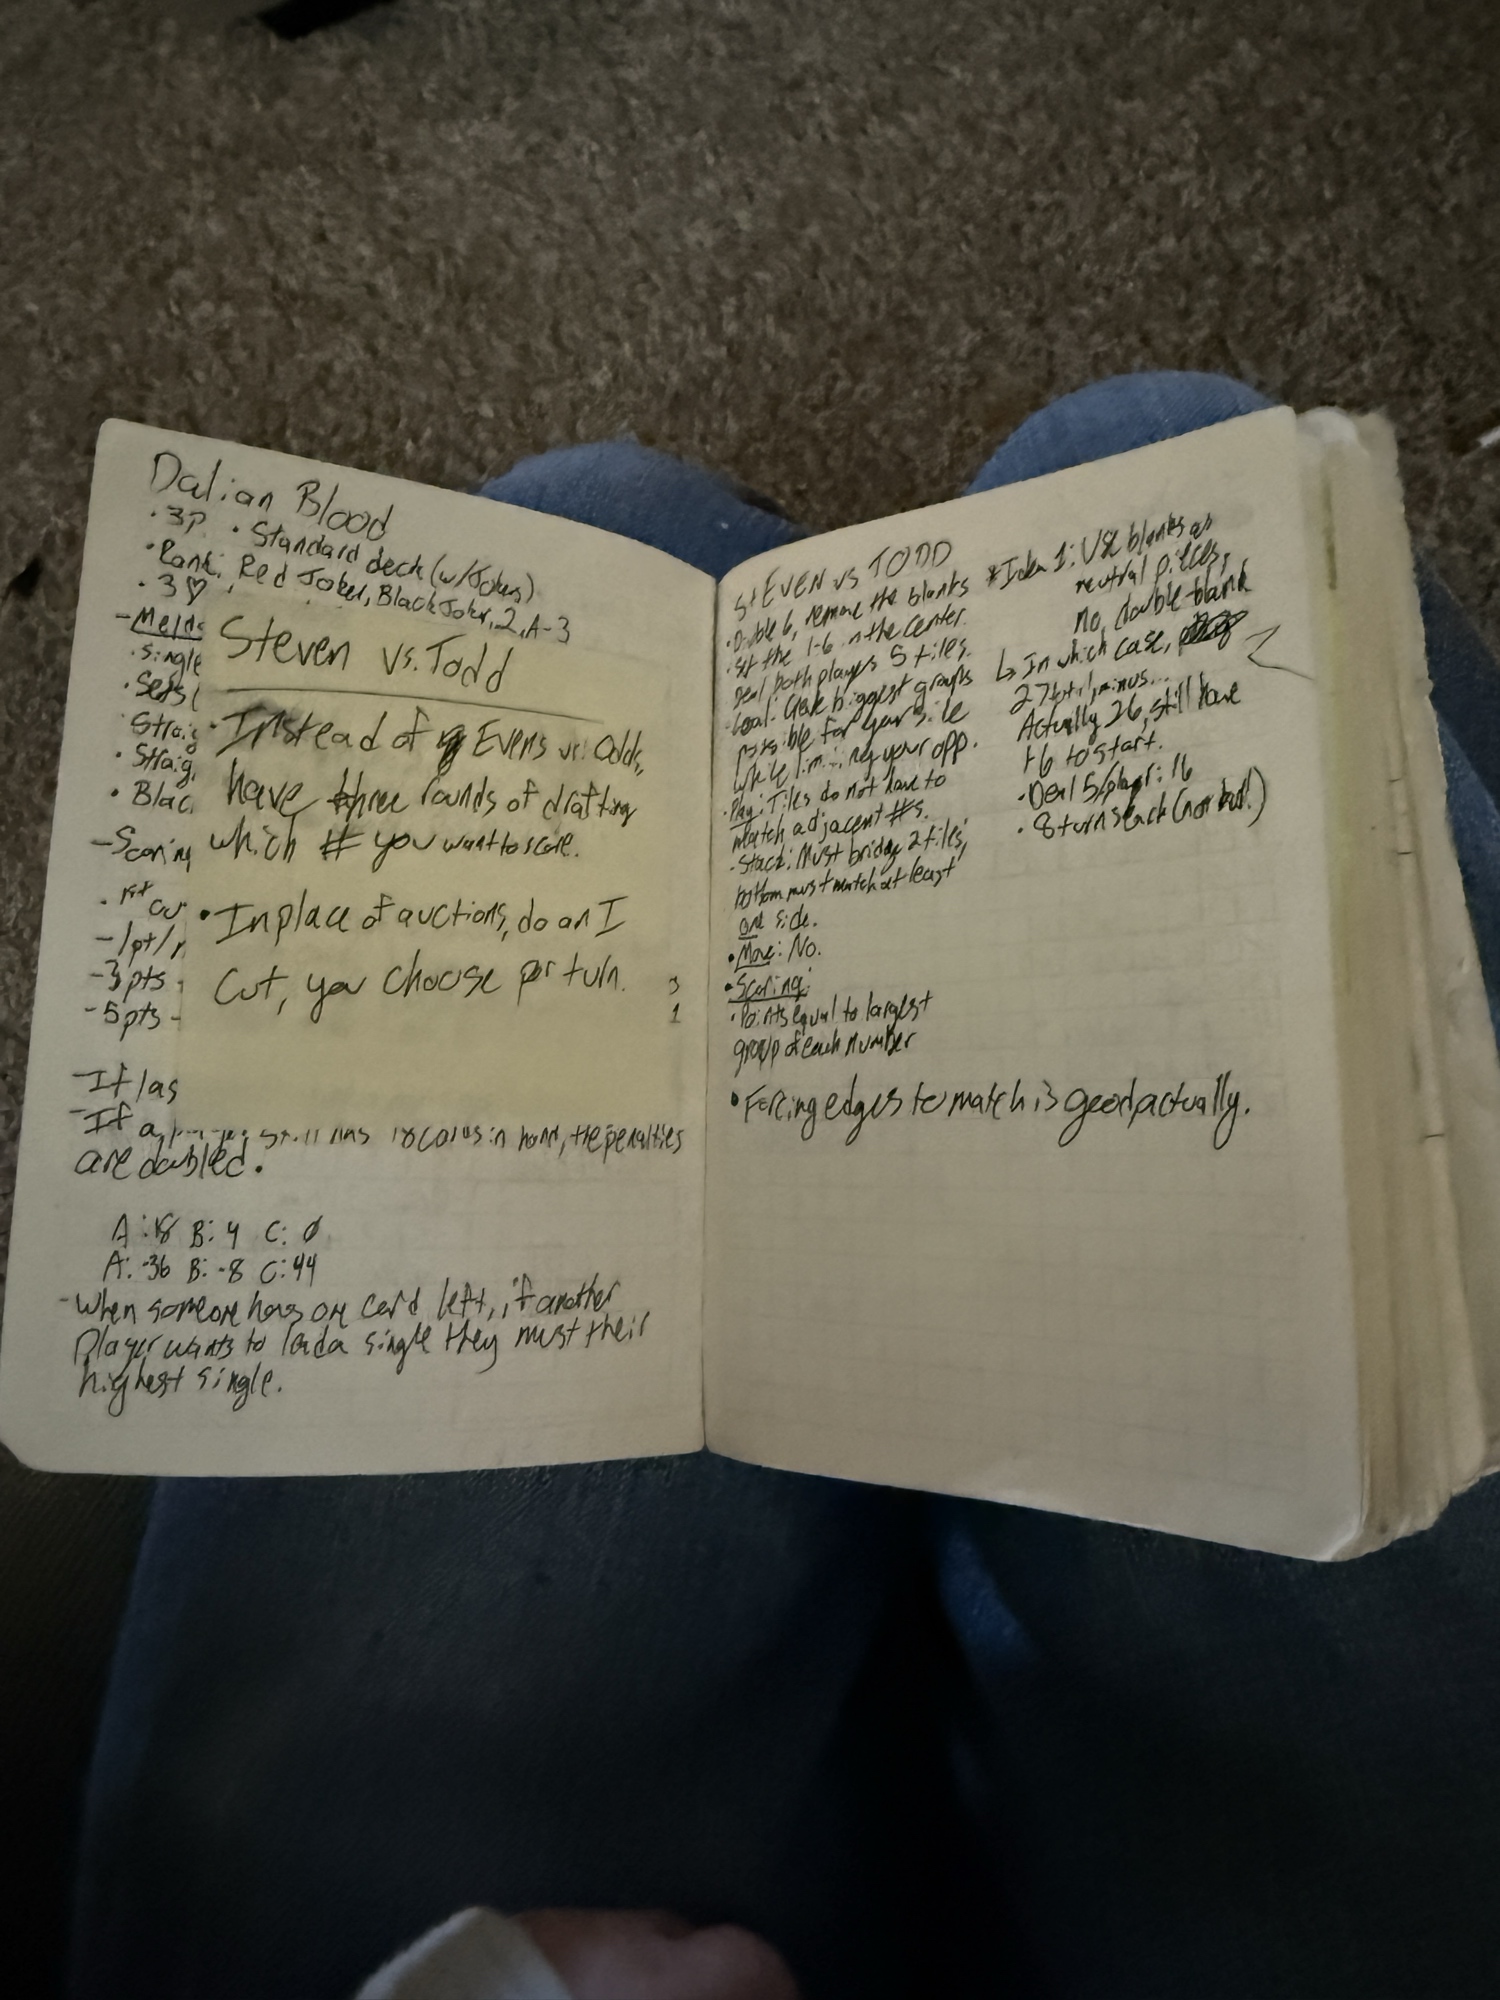 Dalian Blood
• 3P • Standard deck (w/Jokers)
• Rank: Red Joker, Black Joker, 2, A-3
• 3♡
- Melds
• Single
• Sets (
Straig
• Straig
• Blac
- Scoring
- 1pt/
- 3pts
- 5pts -
- If las
- If a still has 18 cards in hand, the penalties
are doubled.
A: 18 B: 4 C: 0
A: -36 B: -8 C: 44
- When someone has one card left, if another
player wants to lead a single they must their
highest single.
Steven vs. Todd
• Instead of Evens vs. Odds,
have three rounds of drafting
which # you want to score.
• In place of auctions, do an I
Cut, you choose per turn.
3
1
STEVEN vs TODD
• Double 6, remove the blanks
• Set the 1-6 in the center.
Deal both players 5 tiles.
• Goal: Have biggest groups
possible for your side
while limiting your opp.
• Play: Tiles do not have to
match adjacent #s.
- Stack: Must bridge 2 tiles,
bottom must match at least
one side.
• Move: No.
• Scoring:
• Points equal to largest
group of each number
• Forcing edges to match is good, actually.
* Idea 1: Use blanks as
neutral pieces,
no double blank
↳ In which case,
27 total, minus...
Actually 26, still have
1-6 to start.
• Deal 5/player: 16
• 8 turns each (not bad!)